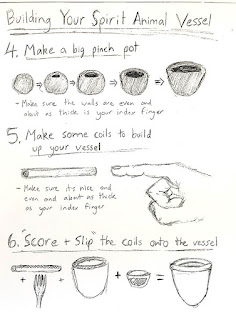 Building Your Spirit Animal Vessel
4. Make a big pinch pot
- Make sure the walls are even and
about as thick is your index finger
5. Make some coils to build
up your vessel
- Make sure it's nice and
even and about as thick
as your index finger
6. "Score + Slip" the coils onto the vessel
+ + =